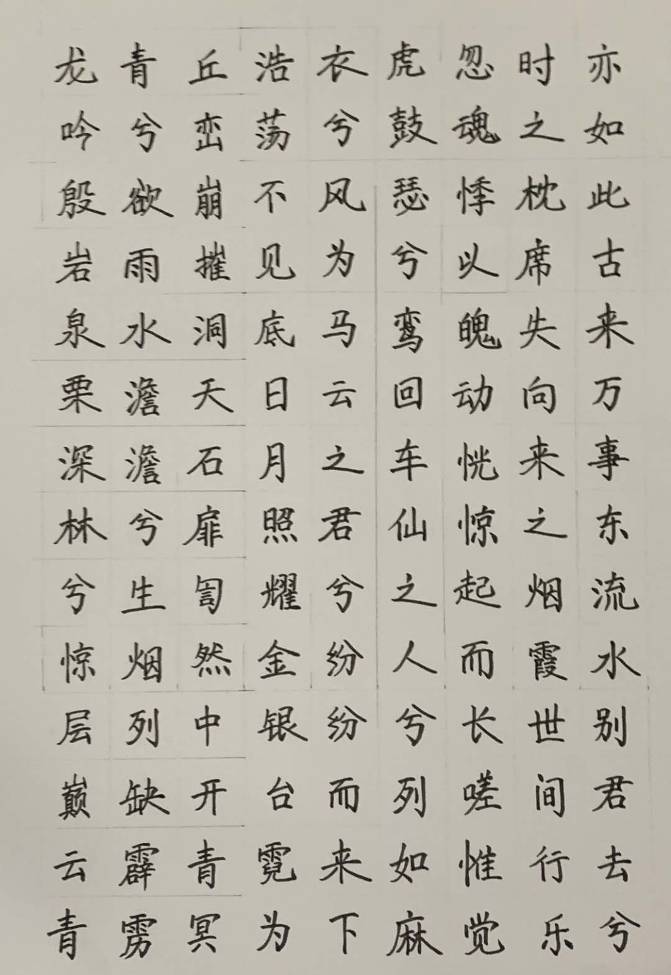 龙吟殷岩泉栗深林兮惊层巅云青
青兮欲雨水澹澹兮生烟列缺霹雳
丘峦崩摧洞天石扉訇然中开青冥
浩荡不见底日月照耀金银台霓为
衣兮风为马云之君兮纷纷而来下
虎鼓瑟兮鸾回车仙之人兮列如麻
忽魂悸以魄动恍惊起而长嗟惟觉
时之枕席失向来之烟霞世间行乐
亦如此古来万事东流水别君去兮